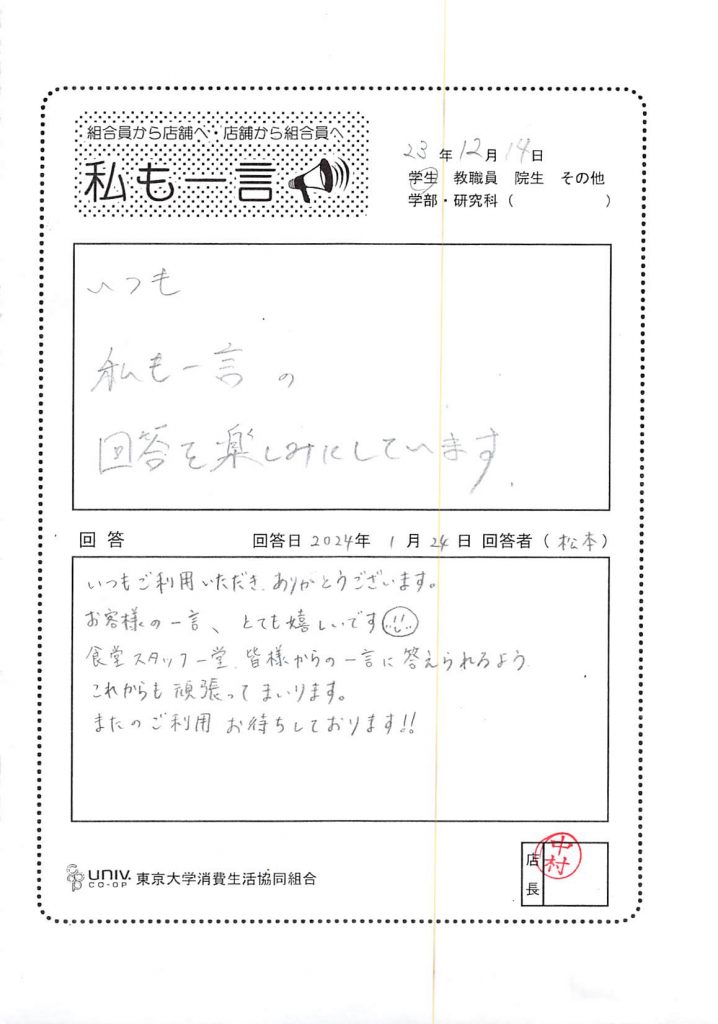 組合員から店舗へ・店舗から組合員へ
私も一言
23年12月14日
学生 教職員 院生 その他
学部・研究科（ ）
いつも
私も一言の
回答を楽しみにしています.
回答 回答日2024年1月24日 回答者（松本）
いつもご利用いただき、ありがとうございます。
お客様の一言、とても嬉しいです
食堂スタッフ一堂、皆様からの一言に答えられるよう
これからも頑張ってまいります。
またのご利用お待ちしております!!
店長
中村
UNIV.
CO-OP
東京大学消費生活協同組合